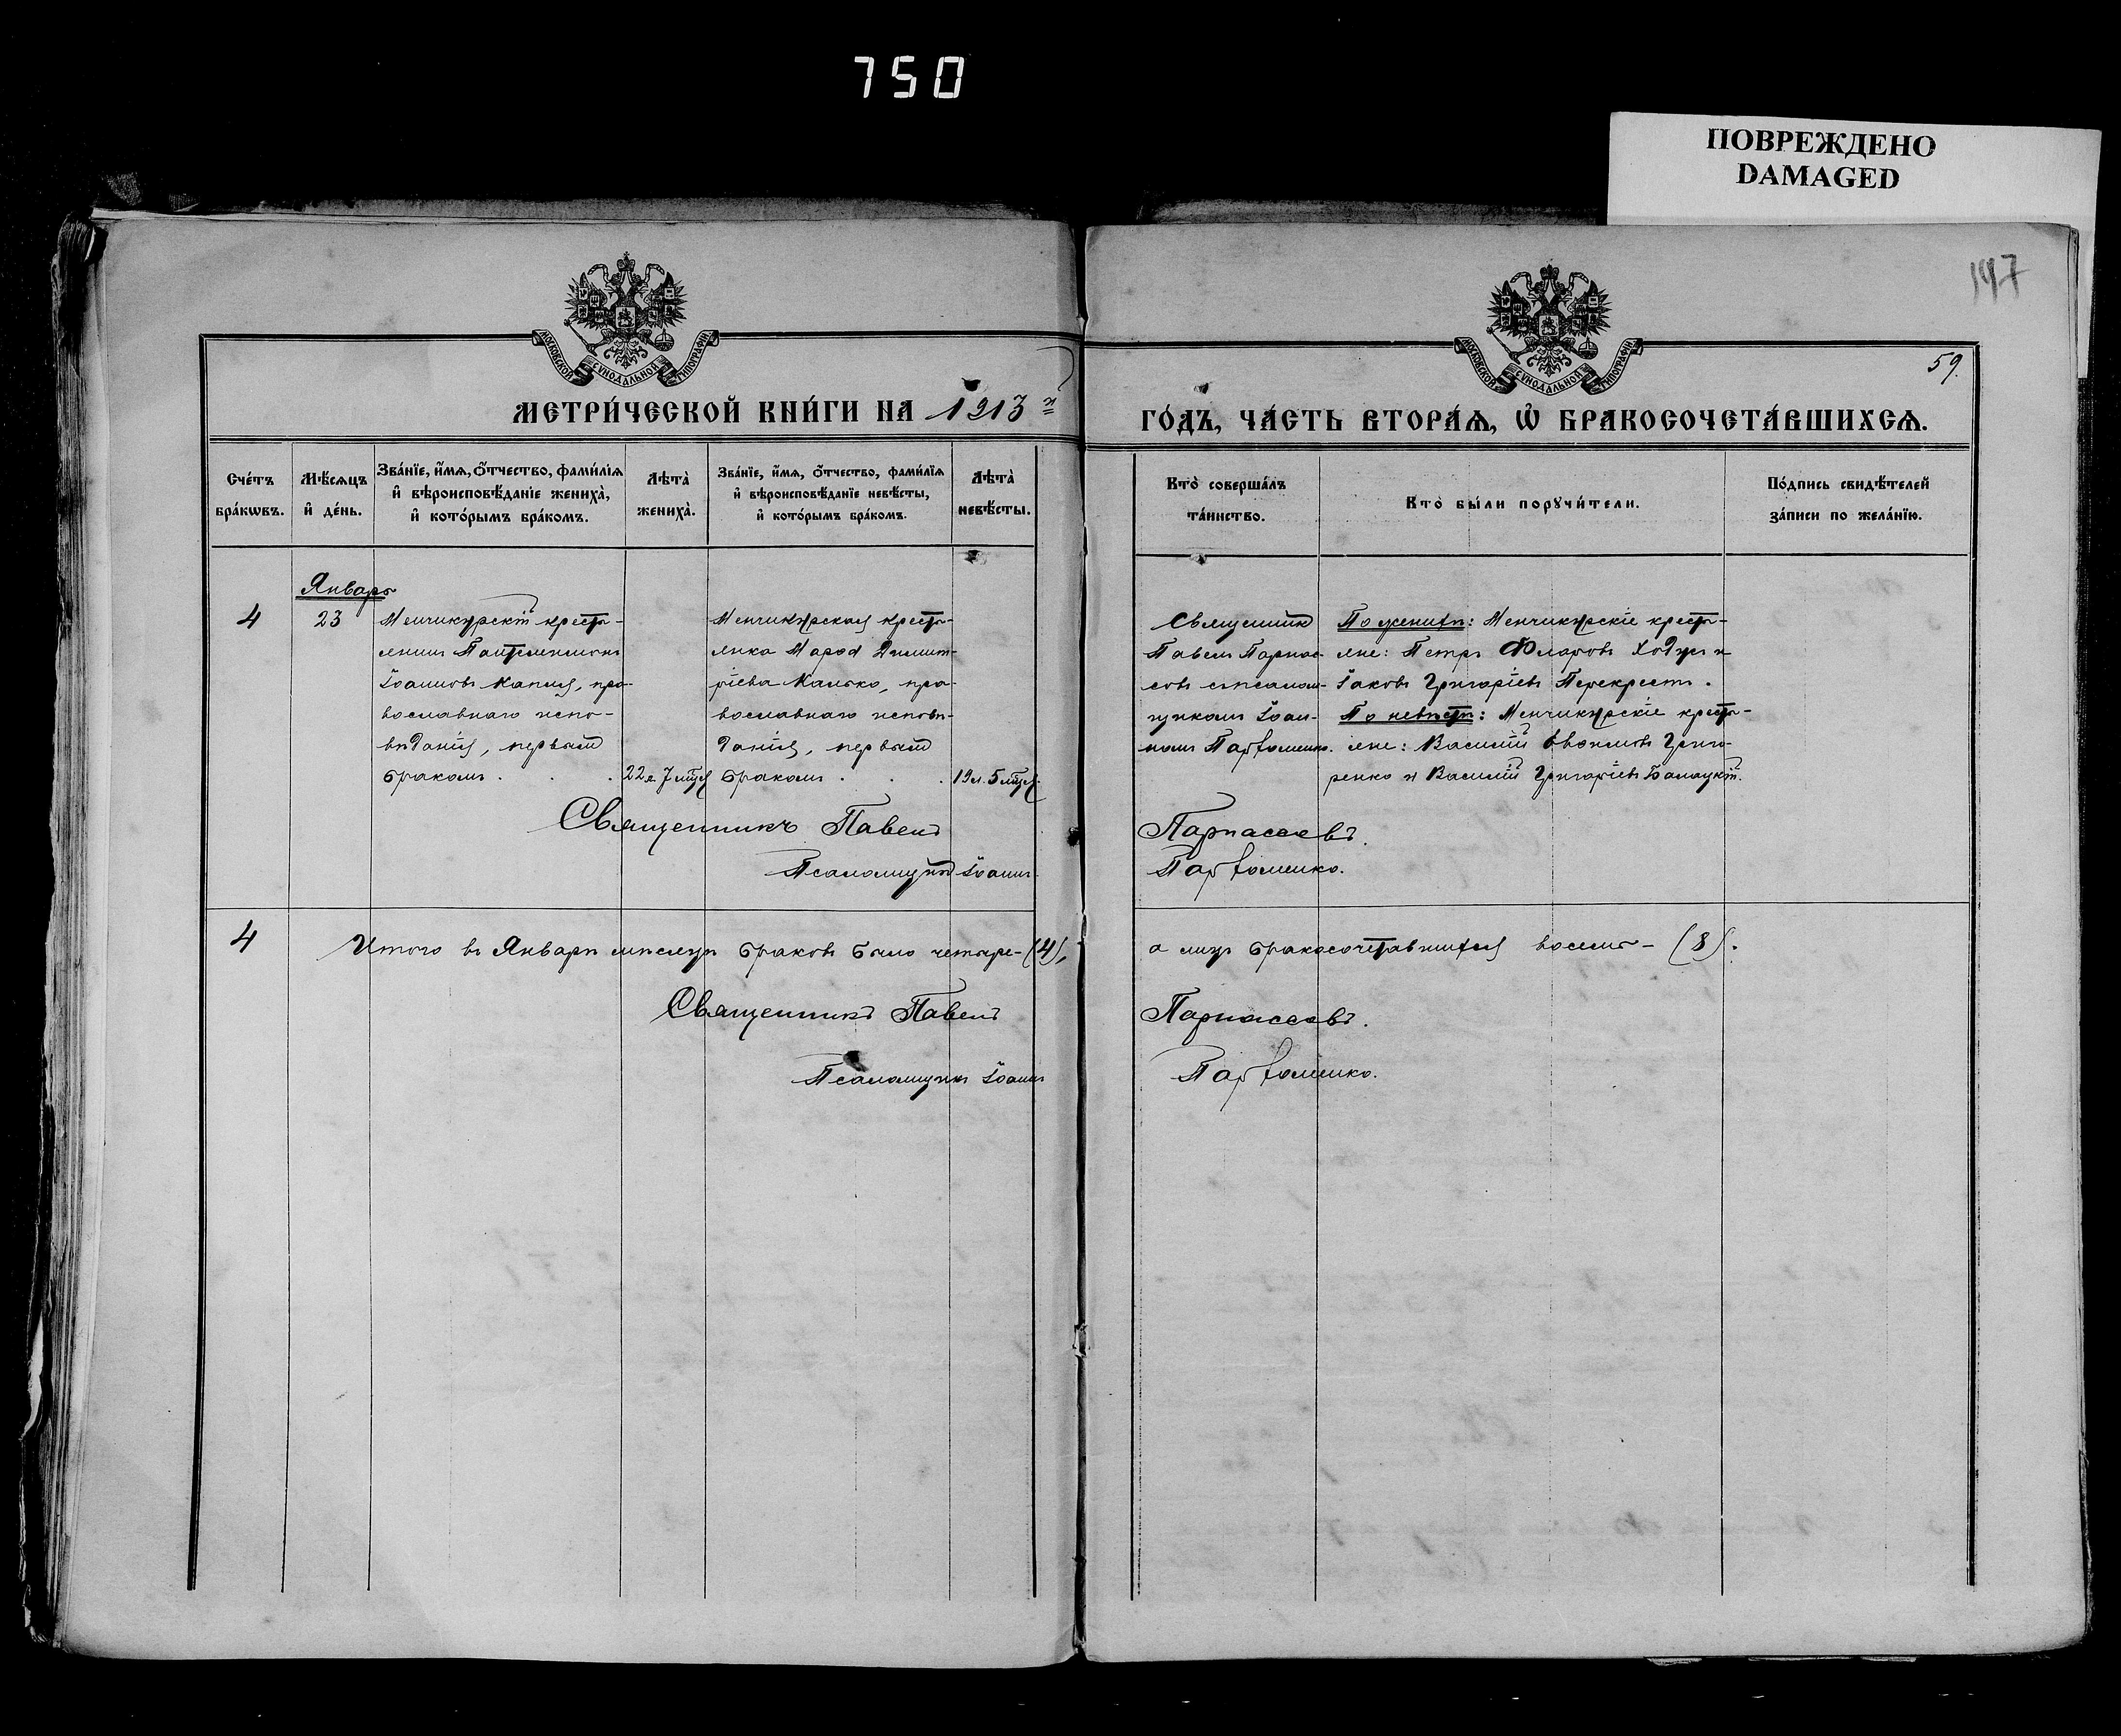 750
ПОВРЕЖДЕНО
DAMAGED
147
59.
МОСКОВСКОЙ СѴНОДАЛЬНОЙ ТИПОГРАФІИ
МОСКОВСКОЙ СѴНОДАЛЬНОЙ ТИПОГРАФІИ
МЕТРИ́ЧЕСКОЙ КНИ́ГИ НА 1913й
ГО́ДЪ, ЧА́СТЬ ВТОРА́Ѧ, Ѡ҆ БРАКОСОЧЕТА́ВШИХСѦ.
Сче́тъ
бра́кѡвъ.
Мѣ́сѧцъ
и҆ де́нь.
Зва́нїе, и҆́мѧ, ѻ҆́тчество, фами́лїѧ
и҆ вѣроисповѣ́данїе жениха̀,
и҆ кото́рымъ бра́комъ.
Лѣта̀
жениха̀.
Зва́нїе, и҆́мѧ, ѻ҆́тчество, фами́лїѧ
и҆ вѣроисповѣ́данїе невѣ́сты,
и҆ кото́рымъ бра́комъ.
Лѣта̀
невѣ́сты.
Кто̀ соверша́лъ
та́инство.
Кто̀ бы́ли порꙋчи́тели.
По́дпись свидѣ́телей
за́писи по жела́нїю.
Январь
4
23
Менчикурскій кресть-
янинъ Пантелеимонъ
Іоанновъ Капля, пра-
вославнаго испо-
вѣданія, первымъ
бракомъ . . .
22л. 7 мѣся
Менчикурская кресть-
янка Димит-
ріева Калько, пра-
вославнаго исповѣ-
данія, первымъ
бракомъ . . .
19л. 5 мѣся.
Священникъ
Павелъ Парнас-
совъ съ псалом-
щикомъ Іоан-
номъ Парѳоменко.
По женихѣ: Менчикурскіе кресть-
яне: Петръ Ходусъ и
Іаковъ Григоріевъ Перекрестъ.
По невѣстѣ: Менчикурскіе кресть-
яне: Василій Григо-
ренко и Василій Григоріевъ
Священникъ Павелъ Парнассовъ.
Псаломщикъ Іоаннъ Парѳоменко.
4
Итого въ Январѣ мѣсяцѣ браковъ было четыре-(4), а лицъ бракосочетавшихся восемь-(8).
Священникъ Павелъ Парнассовъ.
Псаломщикъ Іоаннъ Парѳоменко.